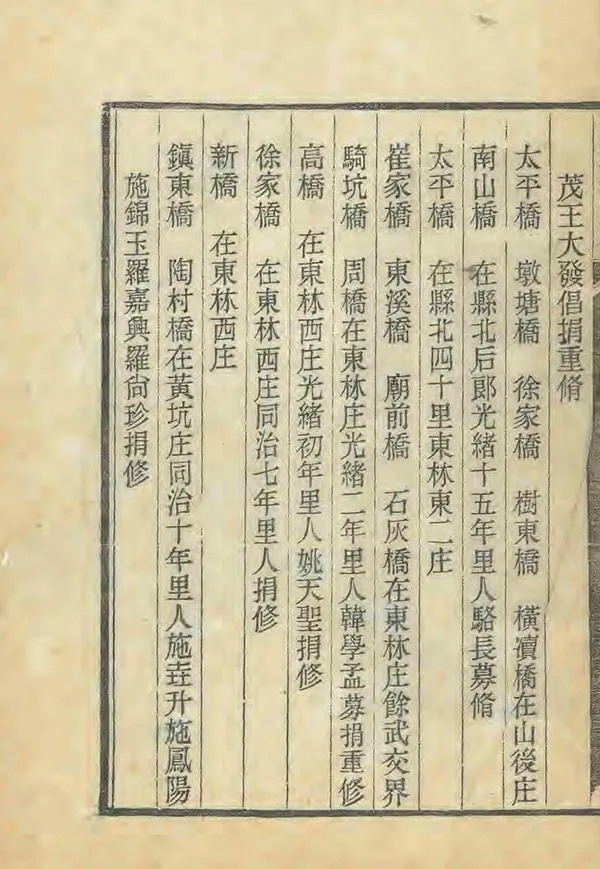 茂王大發倡捐重脩
太平橋 墩塘橋 徐家橋 樹東橋 橫瀆橋在山後庄
南山橋 在縣北后郎光緒十五年里人駱長募脩
太平橋 在縣北四十里東林東二庄
崔家橋 東溪橋 廟前橋 石灰橋在東林庄餘武交界
騎坑橋 周橋在東林庄光緒二年里人韓學孟募捐重修
高橋 在東林西庄光緒初年里人姚天聖捐修
徐家橋 在東林西庄同治七年里人捐修
新橋 在東林西庄
鎮東橋 陶村橋在黃坑庄同治十年里人施垚升施鳳陽
施錦玉羅嘉興羅尙珍捐修